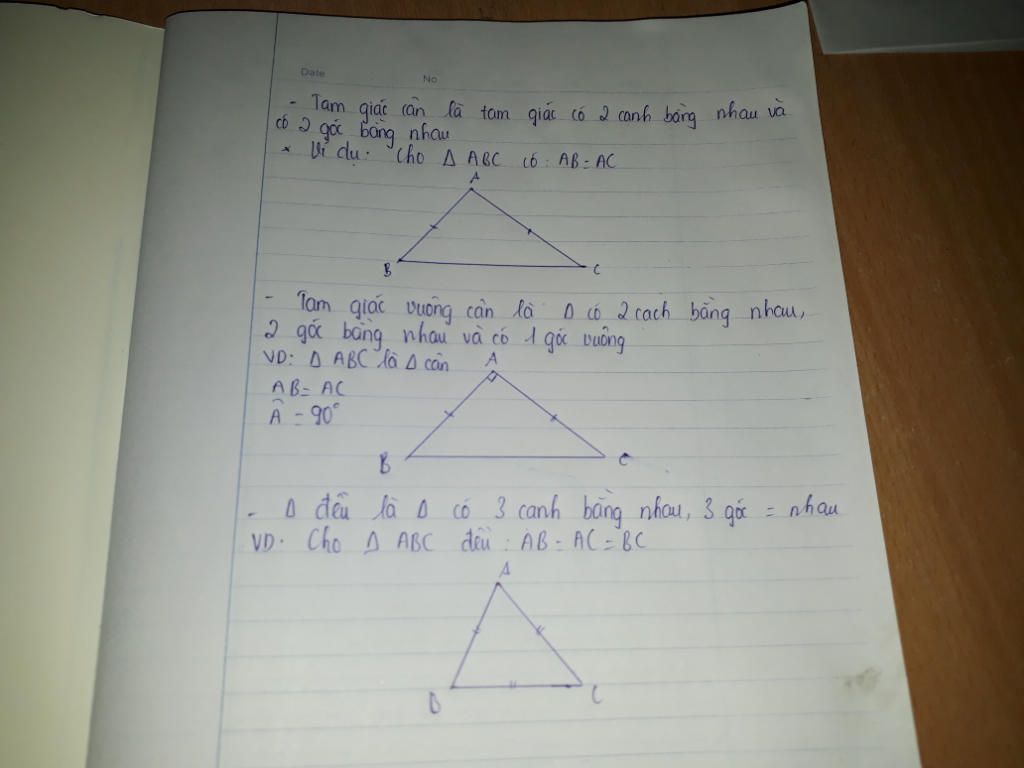 Date No
- Tam giác cân là tam giác có 2 canh bằng nhau và
có 2 góc bằng nhau
* Ví dụ: Cho Δ ABC có: AB = AC
A
B C
- Tam giác vuông cân là Δ có 2 cach bằng nhau,
2 góc bằng nhau và có 1 góc vuông
VD: Δ ABC là Δ cân
A
AB = AC
Â = 90°
B C
- Δ đều là Δ có 3 canh bằng nhau, 3 góc = nhau
VD: Cho Δ ABC đều: AB = AC = BC
A
B C